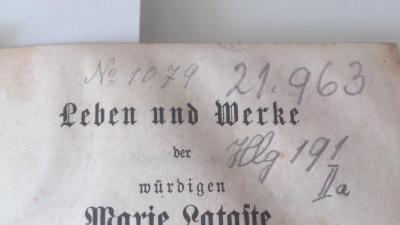 No 1079 21.963
Leben und Werke
der
Hlg 191
IIa
würdigen
Marie Lataste